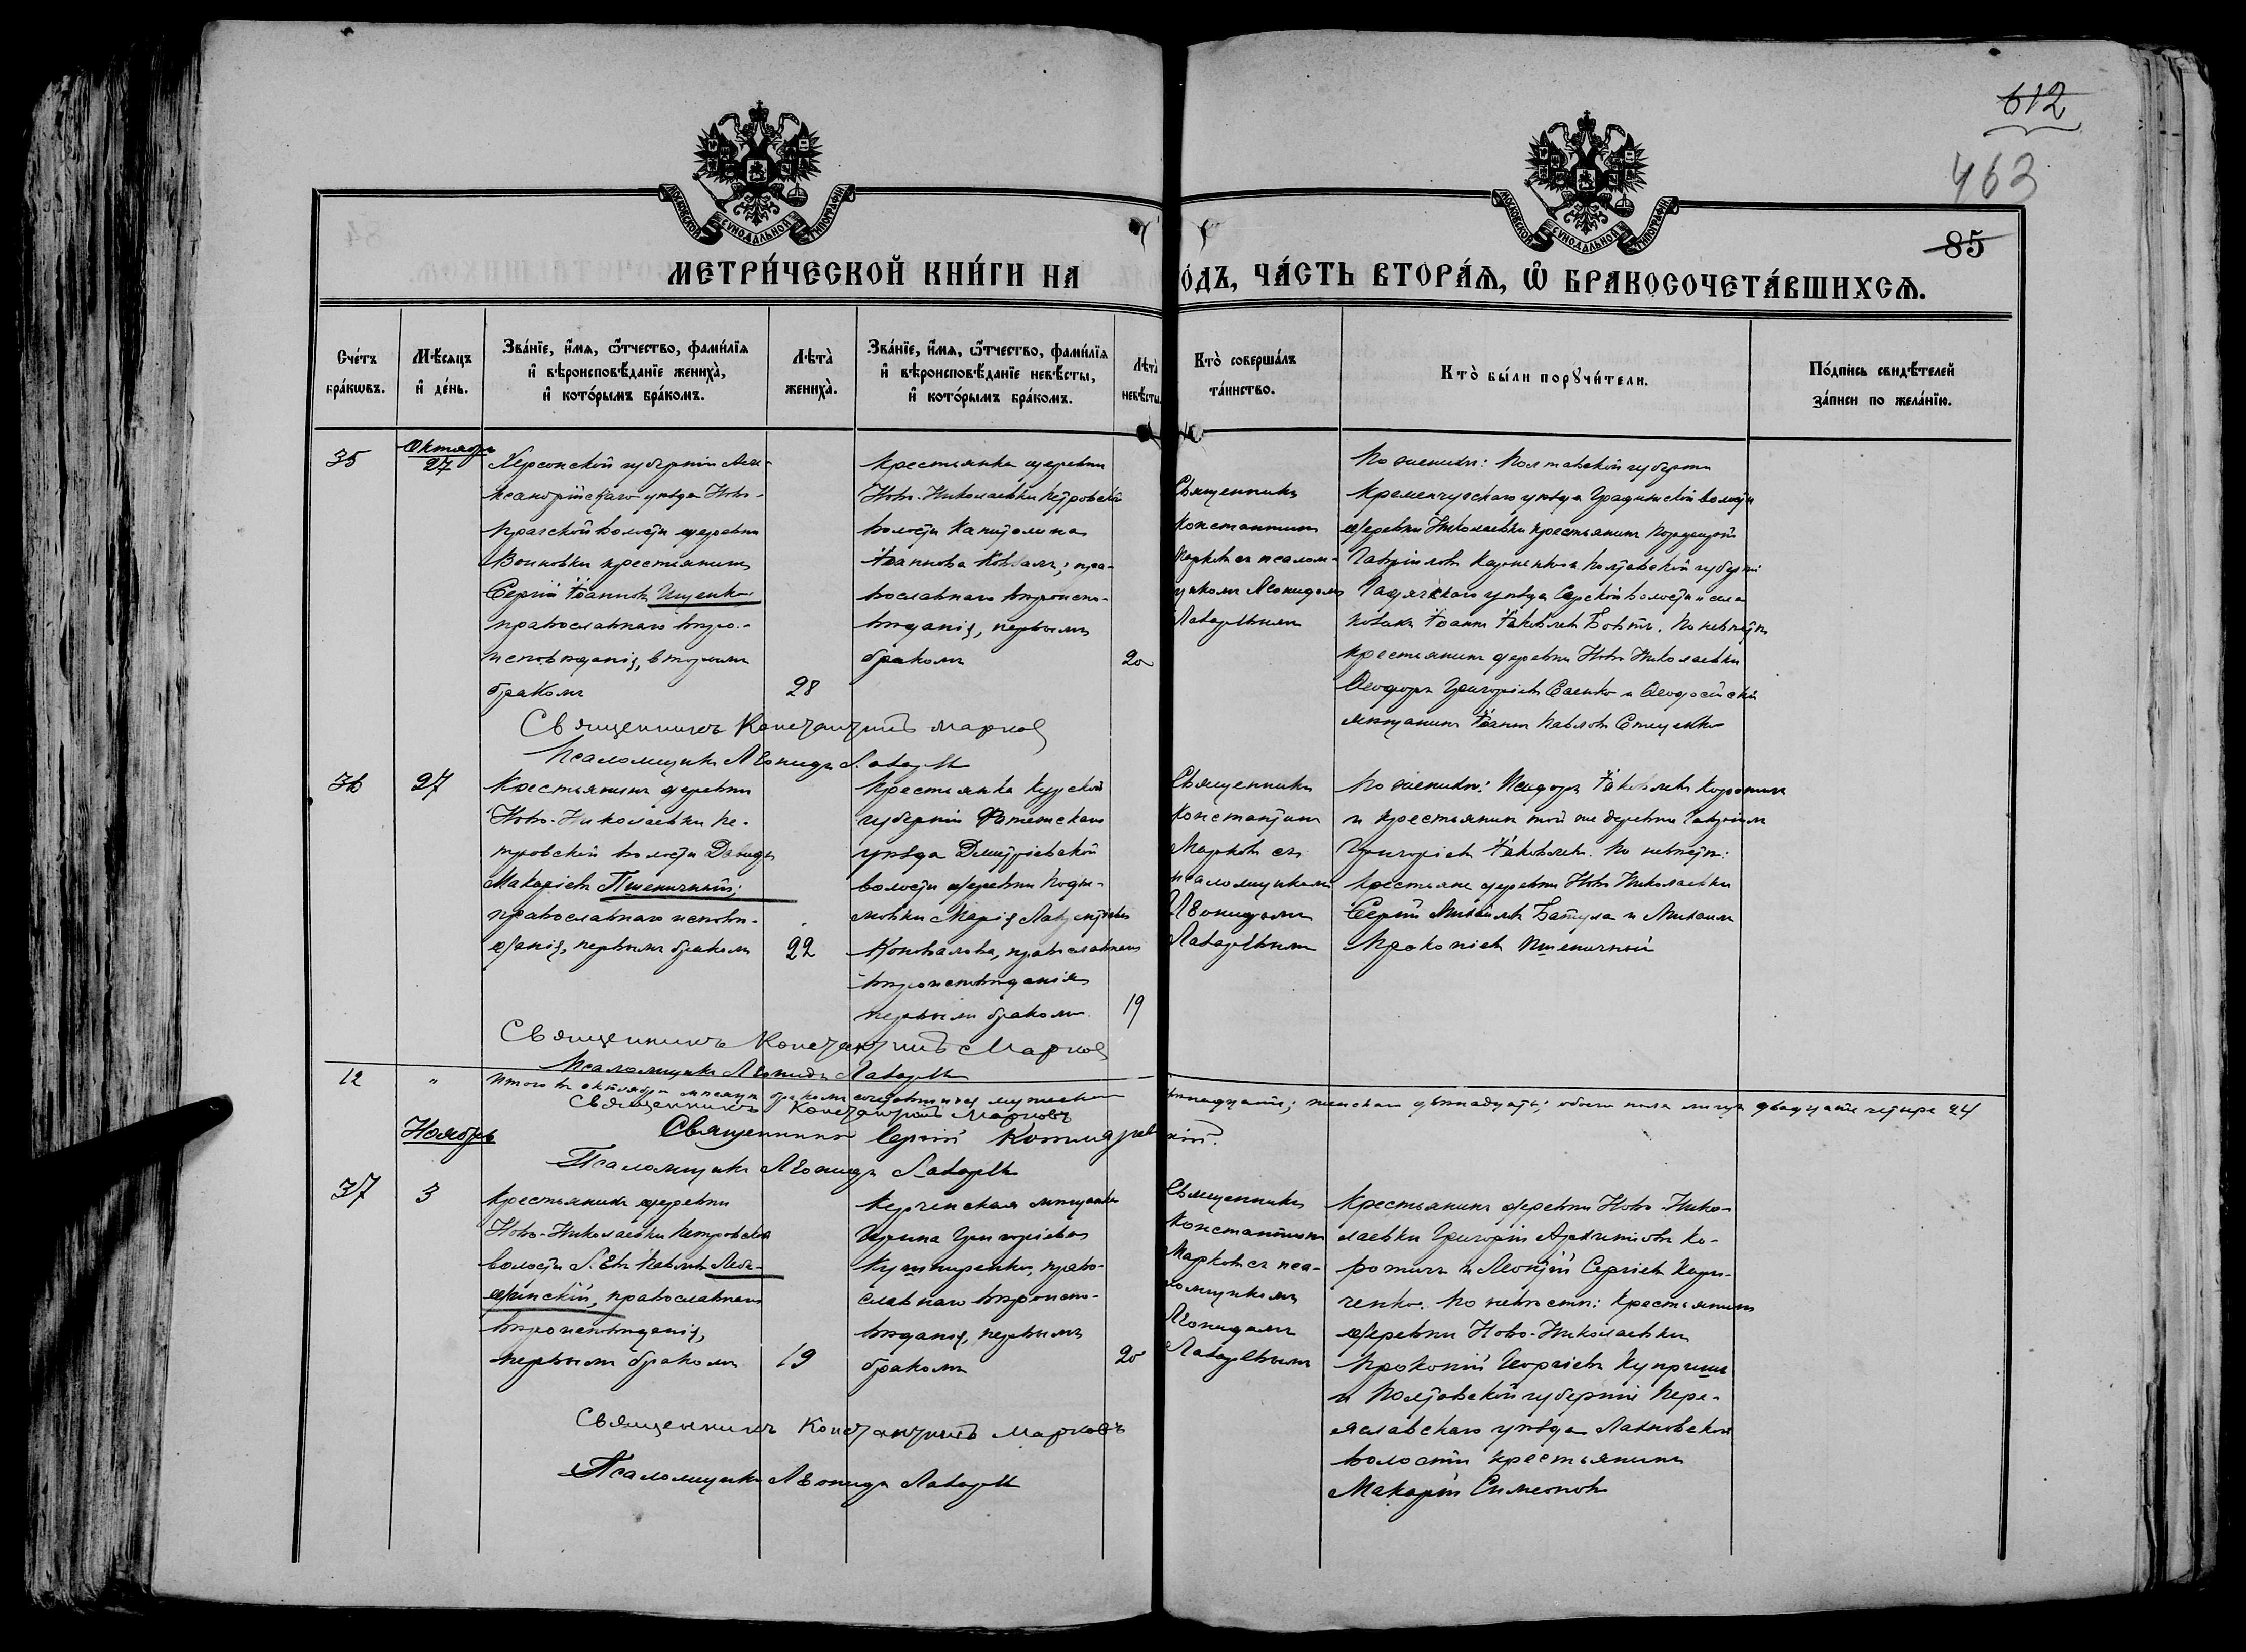 612
463
85
МОСКОВСКОЙ СѴНОДАЛЬНОЙ ТИПОГРАФІИ
МОСКОВСКОЙ СѴНОДАЛЬНОЙ ТИПОГРАФІИ
МЕТРИ́ЧЕСКОЙ КНИ́ГИ НА
О́ДЪ, ЧА́СТЬ ВТОРА́Ѧ, Ѽ БРАКОСОЧЕТА́ВШИХСѦ.
Сче́тъ бра́кѡвъ.
Мѣ́сѧцъ и҆ де́нь.
Зва́нїе, и҆́мѧ, ѻ҆́тчество, фами́лїѧ
и҆ вѣроисповѣ́данїе жениха̀,
и҆ кото́рымъ бра́комъ.
Лѣта̀ жениха̀.
Зва́нїе, и҆́мѧ, ѻ҆́тчество, фами́лїѧ
и҆ вѣроисповѣ́данїе невѣ́сты,
и҆ кото́рымъ бра́комъ.
Лѣта̀ невѣ́сты.
Кто̀ соверша́лъ та́инство.
Кто̀ бы́ли порꙋчи́тели.
По́дпись свидѣ́телей за́писи по жела́нїю.
35
Октябрь
27
Херсонской губерніи Але-
ксандрійскаго уѣзда Ново-
пражской волости деревни
Воиновки крестьянинъ
Сергій Іоанновъ Ищенко
православнаго вѣро-
исповѣданія, вторымъ
бракомъ
28
Крестьянка деревни
Ново-Николаевки Петровской
волости Капитолина
Іоаннова Коваль; пра-
вославнаго вѣроиспо-
вѣданія, первымъ
бракомъ
20
Священникъ
Константинъ
Марковъ съ псалом-
щикомъ Леонидомъ
Лавровымъ
По женихѣ: Полтавской губерніи
Кременчугскаго уѣзда Градижской волости
деревни Николаевки крестьянинъ
Гавріиловъ и Полтавской губерніи
Гадячскаго уѣзда Сарской волости и села
козакъ Іоаннъ Іаковлевъ По невѣстѣ
крестьянинъ деревни Ново Николаевки
Ѳеодоръ Григоріевъ Саенко и Ѳеодосійскій
мѣщанинъ Іоаннъ Павловъ Стеценко
Священникъ Константинъ Марковъ
Псаломщикъ Леонидъ Лавровъ
36
27
Крестьянинъ деревни
Ново-Николаевки Пе-
тровской волости Давидъ
Макаріевъ Пшеничный;
православнаго исповѣ-
данія, первымъ бракомъ
22
Крестьянка Курской
губерніи Фатежскаго
уѣзда Дмитріевской
волости деревни
Марія Лаврентіева
Коновалова, православнаго
вѣроисповѣданія
первымъ бракомъ
19
Священникъ
Константинъ
Марковъ съ
псаломщикомъ
Леонидомъ
Лавровымъ
По женихѣ: Исидоръ Іаковлевъ
и крестьянинъ той же деревни Гавріилъ
Григоріевъ Яковлевъ. По невѣстѣ:
крестьяне деревни Ново Николаевки
Сергій Михаиловъ Батула и Михаилъ
Прокопіевъ Пшеничный
Священникъ Константинъ Марковъ
Псаломщикъ Леонидъ Лавровъ
12 "
Итого въ октябрѣ мѣсяцѣ бракомъ сочетавшихся мужескаго двѣнадцать; женскаго двѣнадцать; обоего пола лицъ двадцать четыре 24
Священникъ Константинъ Марковъ
Священникъ Сергій
Псаломщикъ Леонидъ Лавровъ
Ноябрь
37
3
Крестьянинъ деревни
Ново-Николаевки Петровской
волости Левъ Павловъ Лебе-
динскій, православнаго
вѣроисповѣданія,
первымъ бракомъ
19
Керченская мѣщанка
Ирина Григоріева
Кушниренко, право-
славнаго вѣроиспо-
вѣданія, первымъ
бракомъ
20
Священникъ
Константинъ
Марковъ съ пса-
ломщикомъ
Леонидомъ
Лавровымъ
Крестьянинъ деревни Ново-Нико-
лаевки Григорій
и Леонтій Сергіевъ
По невѣстѣ: крестьянинъ
деревни Ново-Николаевки
Прокопій Георгіевъ
и Полтавской губерніи Пере-
яславскаго уѣзда
волости крестьянинъ
Макарій Симеоновъ
Священникъ Константинъ Марковъ
Псаломщикъ Леонидъ Лавровъ